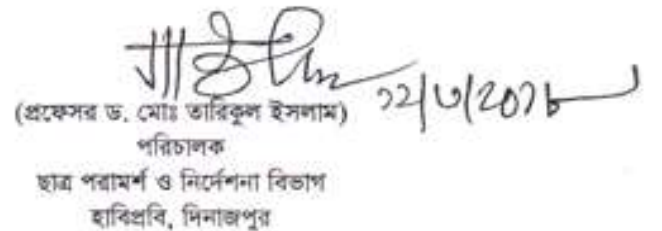 (প্রফেসর ড. মোঃ তারিকুল ইসলাম)
পরিচালক
ছাত্র পরামর্শ ও নির্দেশনা বিভাগ
হাবিপ্রবি, দিনাজপুর